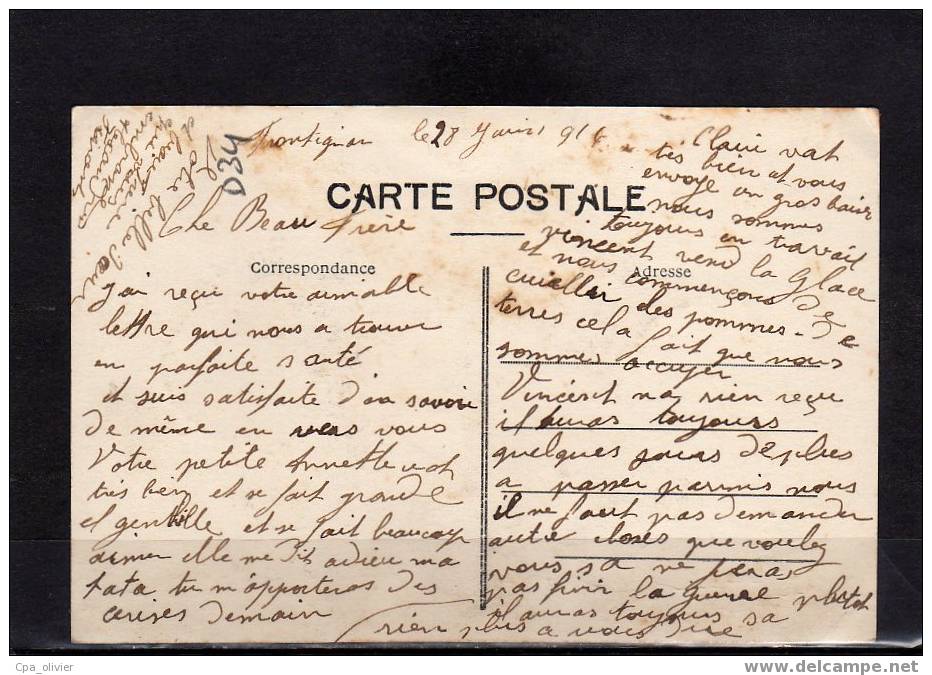 Frontignan le 28 Juin 1916
034
CARTE POSTALE
Correspondance
Adresse
Che Beau Frère
J'ai reçu votre aimable
lettre qui nous a trouver
en parfaite santé
et suis satisfaite d'en savoir
de même en vers vous
Votre petite Annette vat
très bien et se fait grande
et gentille et se fait beaucoup
aimer elle me dit adieu ma
tata tu m'apporteras des
cerises demain
Claire vat
tès bien et vous
envoye un gros baiser
nous sommes
toujours en travail
vincent vend la Glace
et nous commençons de
cueillir des pommes de
terres cela fait que nous
sommes occuper
Vincent na rien reçu
il auras toujours
quelques jours de plus
a passer parmis nous
il ne faut pas demander
autre choses que voulez
vous sa ne feras
pas finir la guerre plutot
il auras toujours sa
rien plus a vous dire
Votre belle sœur
qui vous
embrasse